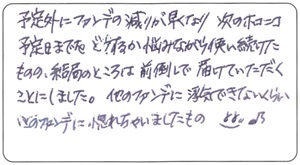 予定外にファンデの減りが早くなり 次のホコニコ
予定日までをどうするか悩みながら使い続けた
ものの、結局のところは前倒しで届けていただく
ことにしました。他のファンデに浮気できないくらい
いどのファンデに惚れちゃいましたもの